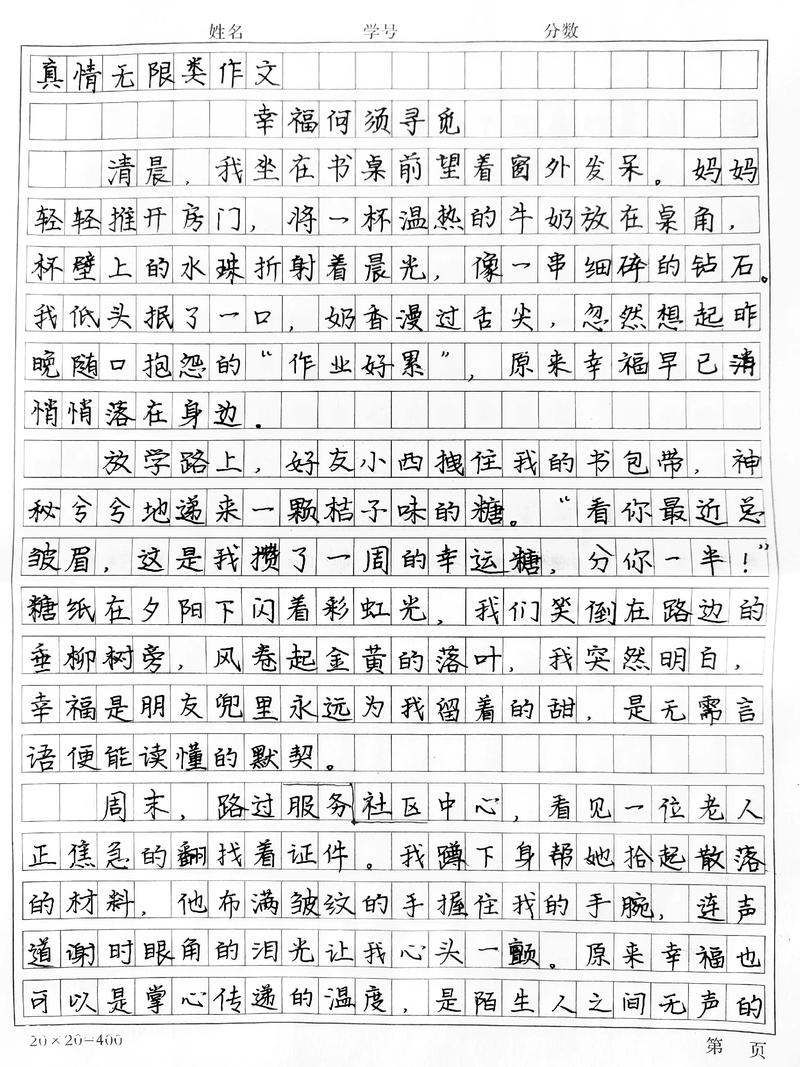 姓名 学号 分数
真情无限类作文
幸福何须寻觅
清晨，我坐在书桌前望着窗外发呆。妈妈
轻轻推开房门，将一杯温热的牛奶放在桌角，
杯壁上的水珠折射着晨光，像一串细碎的钻石。
我低头抿了一口，奶香漫过舌尖，忽然想起昨
晚随口抱怨的“作业好累”，原来幸福早已
悄悄落在身边．
放学路上，好友小西拽住我的书包带，神
秘兮兮地递来一颗桔子味的糖。“看你最近总
皱眉，这是我攒了一周的幸运糖，分你一半！”
糖纸在夕阳下闪着彩虹光，我们笑倒在路边的
垂柳树旁，风卷起金黄的落叶，我突然明白，
幸福是朋友兜里永远为我留着的甜，是无需言
语便能读懂的默契。
周末，路过服务社区中心，看见一位老人
正焦急的翻找着证件。我蹲下身帮她拾起散落
的材料，他布满皱纹的手握住我的手腕，连声
道谢时眼角的泪光让我心头一颤。原来幸福也
可以是掌心传递的温度，是陌生人之间无声的
20×20=400 第 页